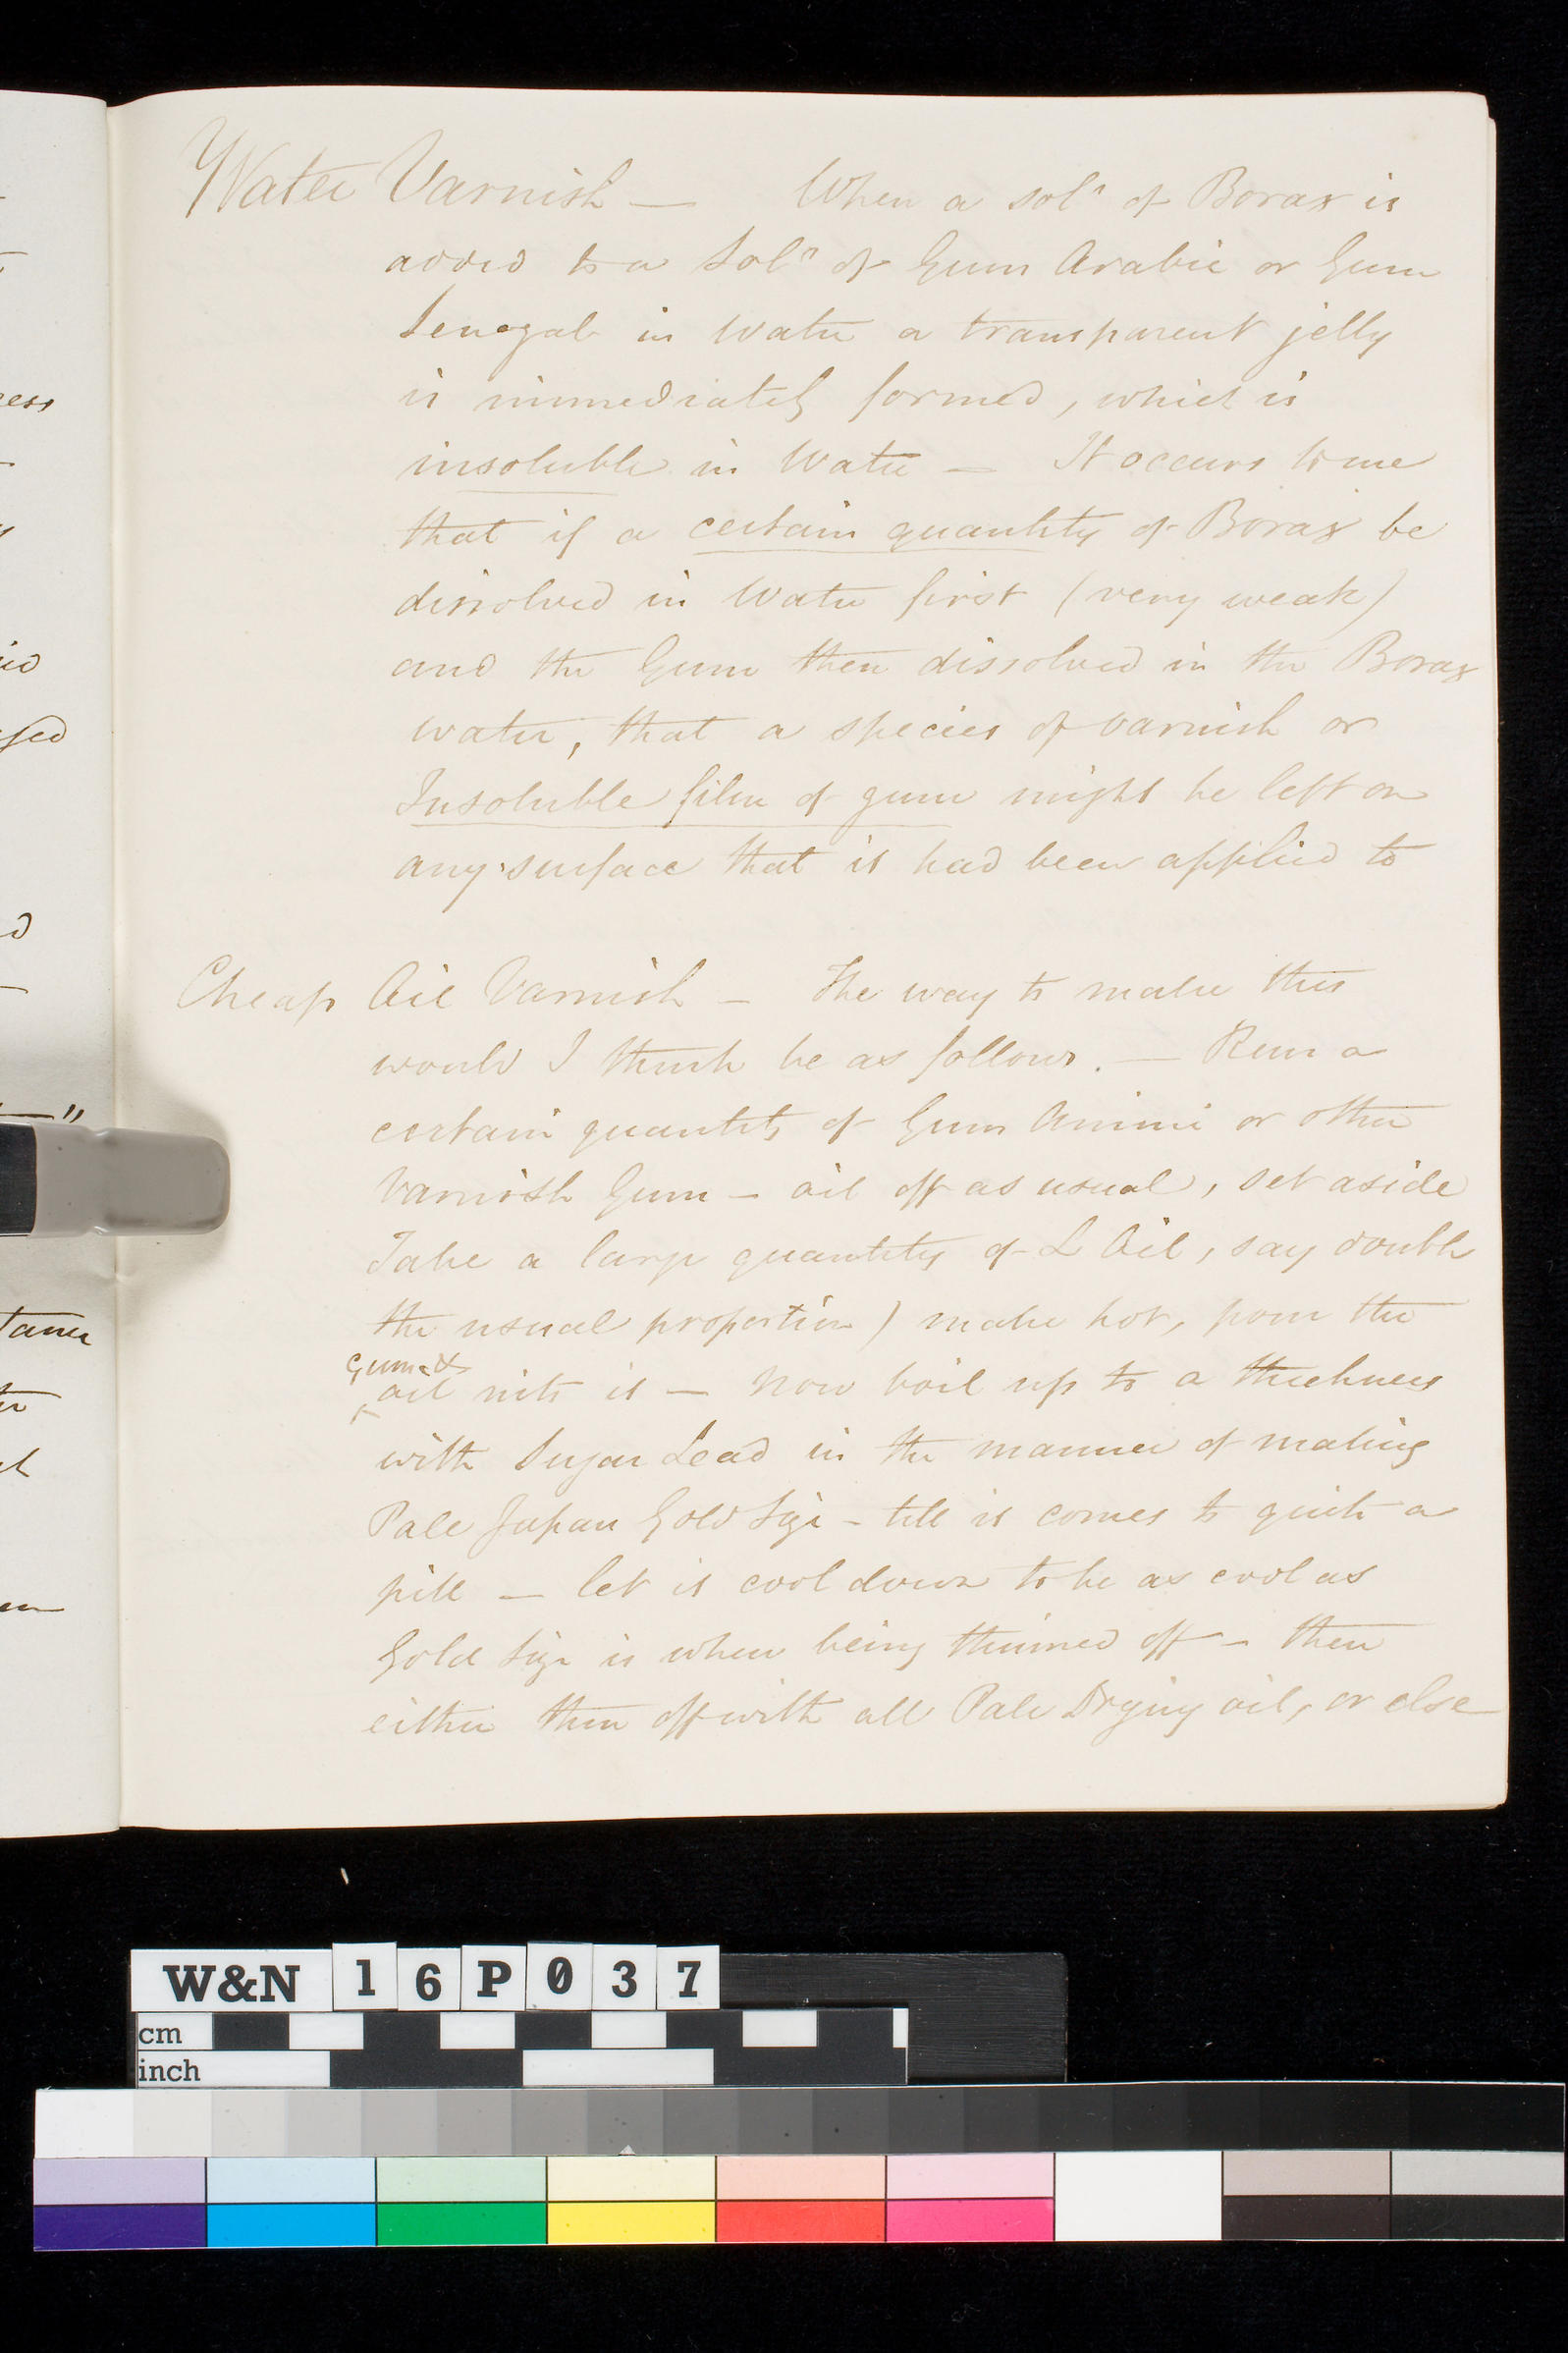 Water Varnish — When a solⁿ of Borax is
added to a Solⁿ of Gum Arabic or Gum
Senegal in Water a transparent jelly
is immediately formed, which is
insoluble in Water — It occurs to me
that if a certain quantity of Borax be
dissolved in Water first (very weak)
and the Gum then dissolved in the Borax
water, that a species of varnish or
Insoluble film of gum might be left on
any surface that it had been applied to
Cheap Oil Varnish — The way to make this
would I think be as follows. — Run a
certain quantity of Gum Animi or other
Varnish Gum — oil off as usual, set aside
Take a large quantity of L Oil, say double
the usual proportion) make hot, pour the
gum &
oil into it — Now boil up to a thickness
with Sugar Lead in the manner of making
Pale Japan Gold Size — till it comes to quite a
pill — let it cool down to be as cool as
Gold Size is when being thinned off — then
either thin off with all Pale Drying oil, or else
ess
"
W&N 16P037
cm
inch